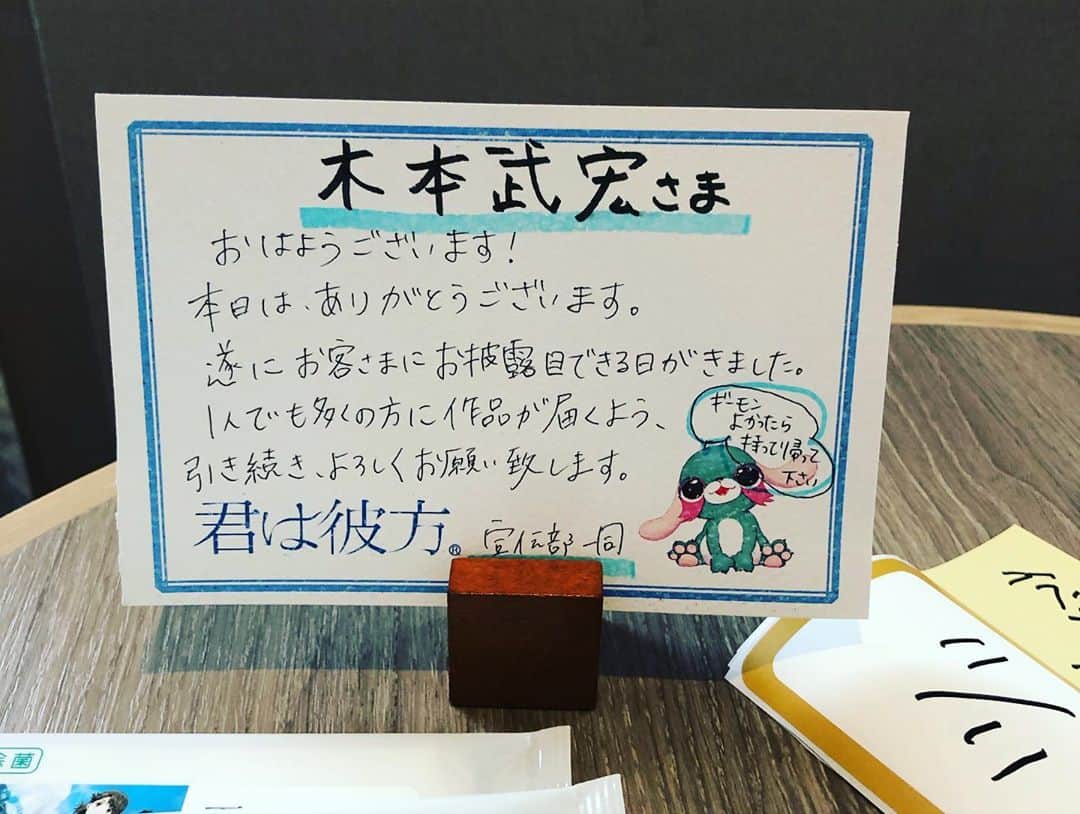 木本武宏さま
おはようございます!
本日は、ありがとうございます。
遂にお客さまにお披露目できる日がきました。
1人でも多くの方に作品が届くよう、
引き続き、よろしくお願い致します。
君は彼方®
宣伝部一同
ギーモン
よかったら
持って帰って
下さい
除菌